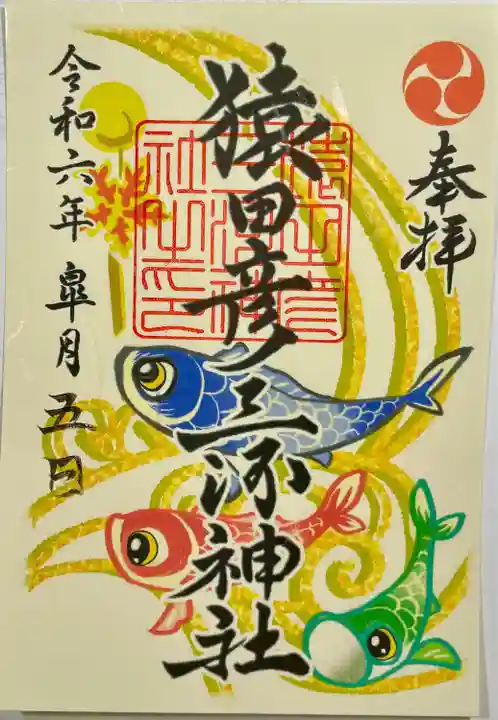 奉拝
猿田彦三河神社
令和六年皐月五日